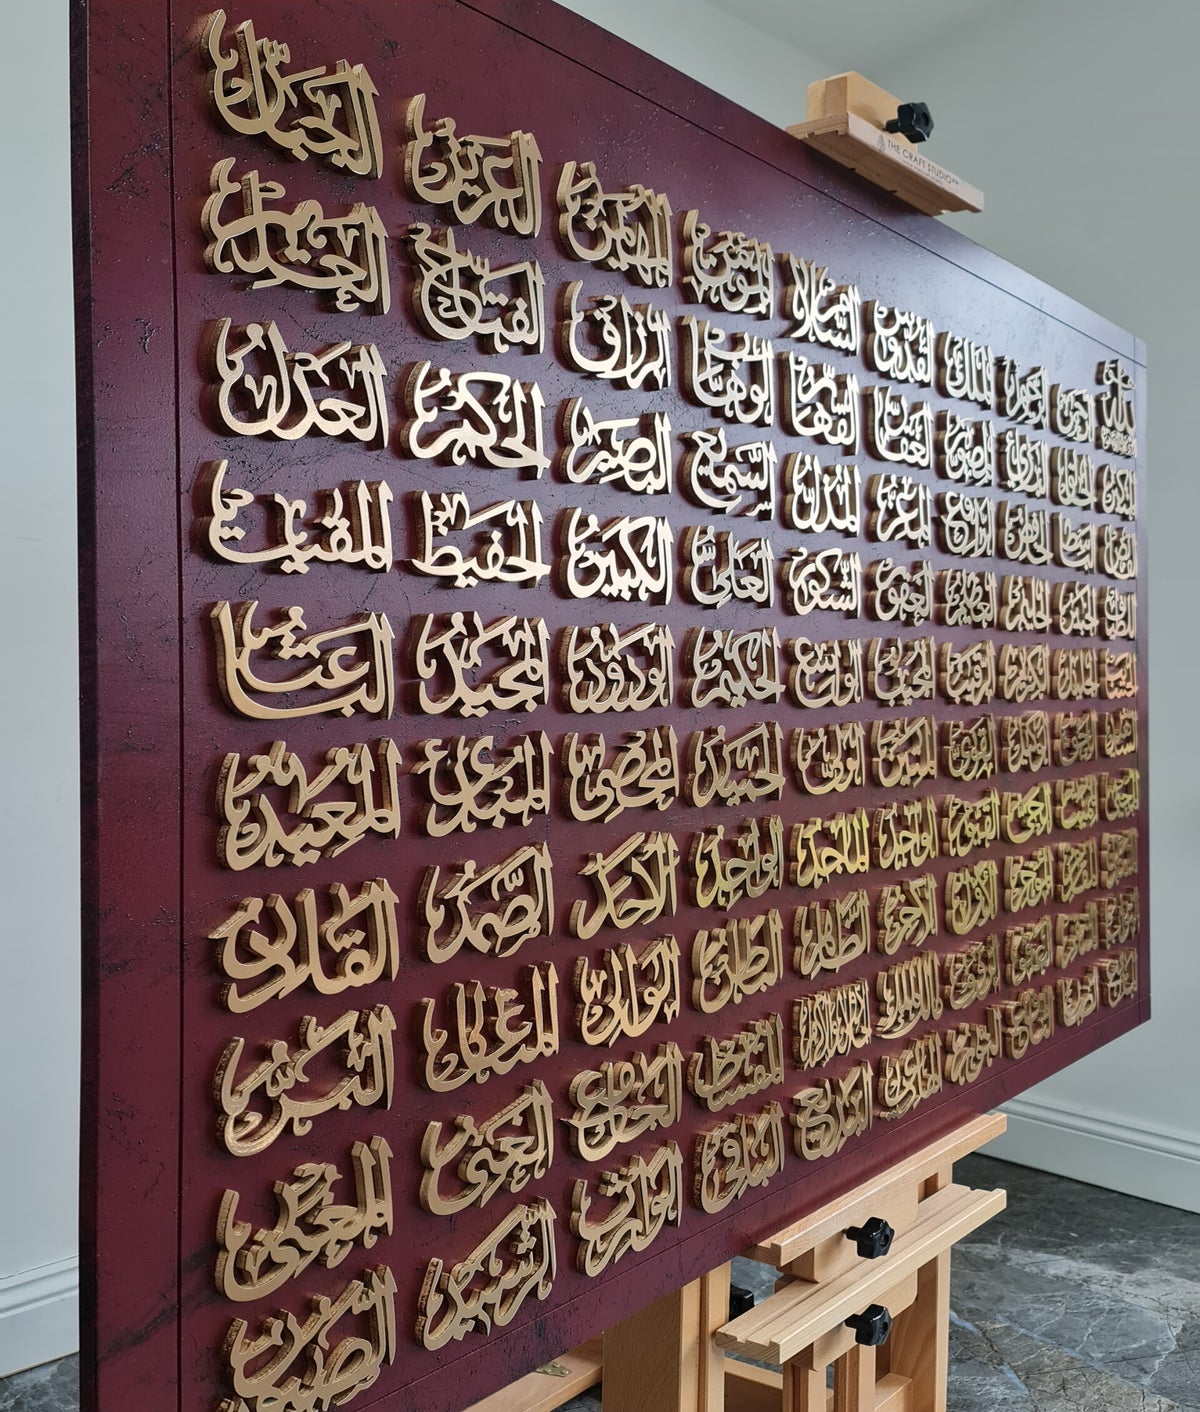 الله الرحمن الرحيم الملك القدوس السلام المؤمن المهيمن العزيز الجبار
المتكبر الخالق البارئ المصور الغفار القهار الوهاب الرزاق الفتاح العليم
القابض الباسط الخافض الرافع المعز المذل السميع البصير الحكم العدل
اللطيف الخبير الحليم العظيم الغفور الشكور العلي الكبير الحفيظ المقيت
الحسيب الجليل الكريم الرقيب المجيب الواسع الحكيم الودود المجيد الباعث
الشهيد الحق الوكيل القوي المتين الولي الحميد المحصي المبدئ المعيد
المحيي المميت الحي القيوم الواجد الماجد الواحد الاحد الصمد القادر
المقتدر المقدم المؤخر الاول الاخر الظاهر الباطن الوالي المتعالي البر
التواب المنتقم العفو الرؤوف مالك الملك ذو الجلال والاكرام المقسط الجامع الغني المغني
المانع الضار النافع النور الهادي البديع الباقي الوارث الرشيد الصبور
THE CRAFT STUDIO